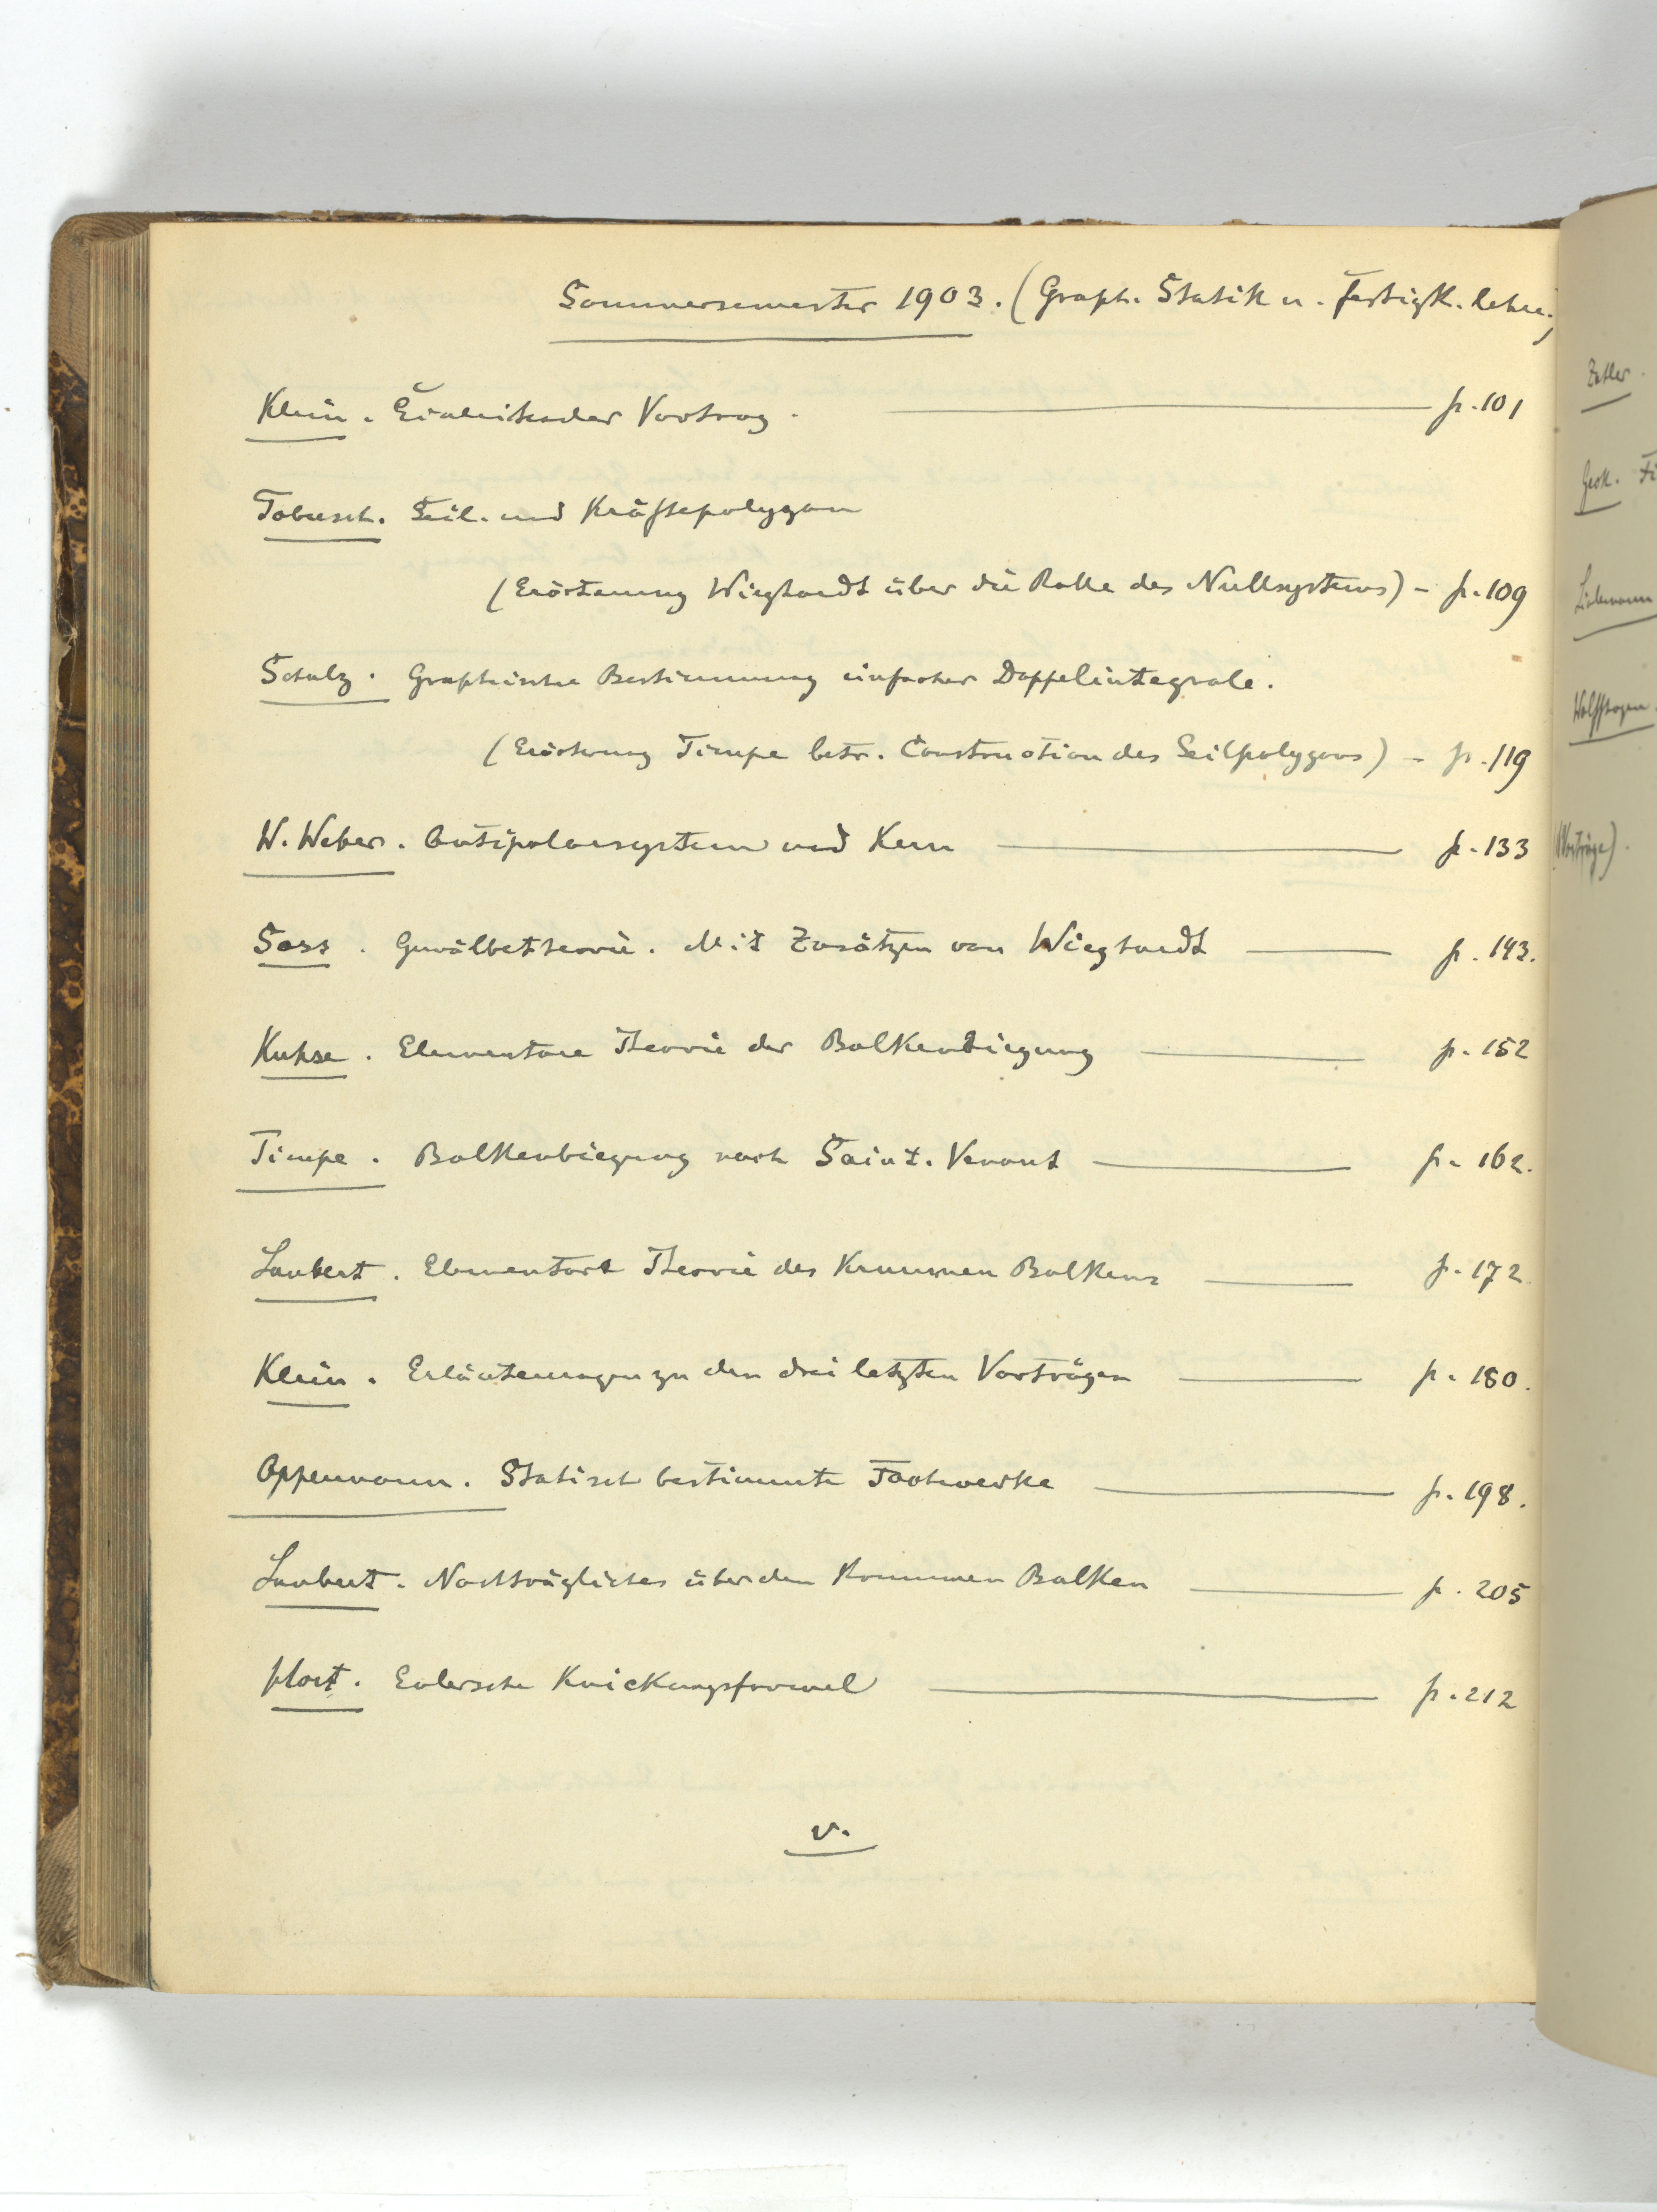 Sommersemester 1903. (Graph. Statik u. Festigk. lehre.)
Klein. Einleitender Vortrag. p. 101
Tobusch. Seil- und Kräftepolygon
(Erörterung Wieghardt über die Rolle des Nullsystems) - p. 109
Schulz. Graphische Bestimmung einfacher Doppelintegrale.
(Erörterung Timpe betr. Construction des Seilpolygons) - p. 119
W. Weber. Antipolarsystem und Kern p. 133
Soss. Gewölbetheorie. Mit Zusätzen von Wieghardt p. 143.
Kuhse. Elementare Theorie der Balkenbiegung p. 152
Timpe. Balkenbiegung nach Saint-Venant p. 162.
Laubert. Elementare Theorie des Krummen Balkens p. 172
Klein. Erläuterungen zu den drei letzten Vorträgen p. 180.
Oppermann. Statisch bestimmte Fachwerke p. 198.
Laubert. Nachträgliches über den Krummen Balken p. 205
Hort. Eulersche Knickungsformel p. 212
v.
Lindemann
Wolffhagen.
(Vorträge).